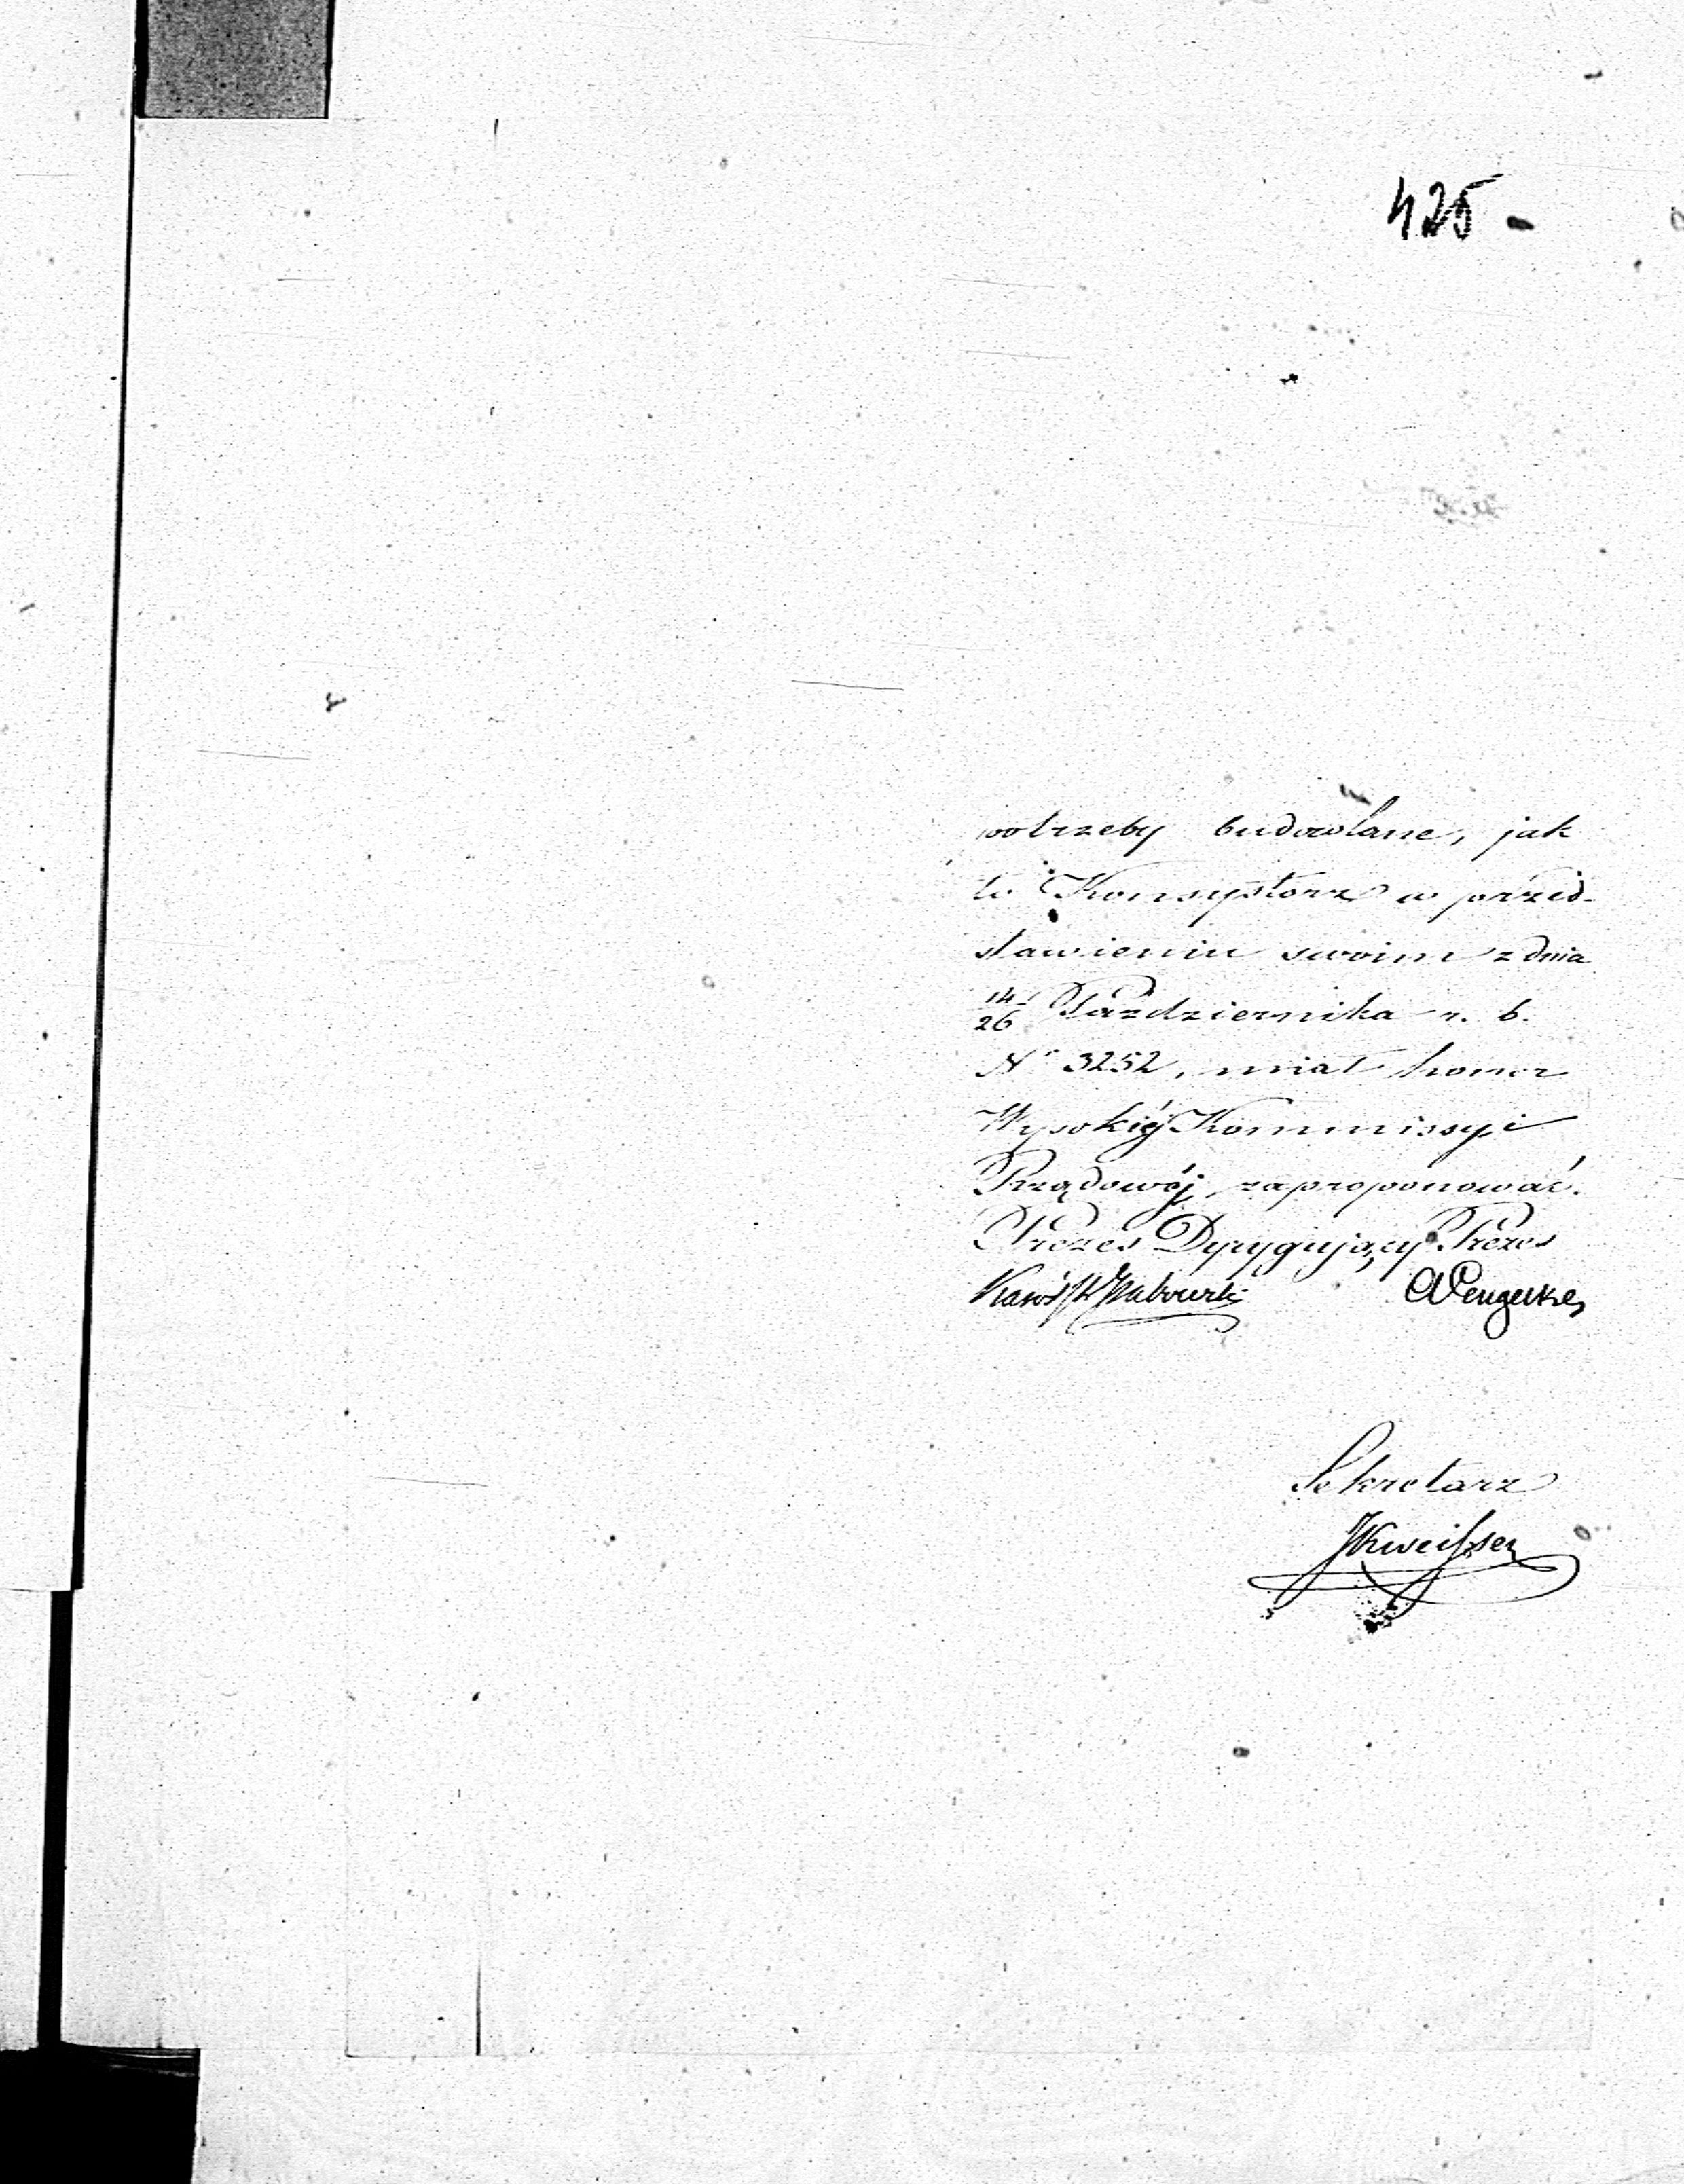 425
potrzeby budowlane, jak
to Konsystorz w przed-
stawieniu swoim z dnia
14/26 Października r. b.
Nº 3252, miał honor
Wysokiéy Kommissyi
Rządowéj zaproponować.
Prezes Dyrygujący Prezes
Sekretarz